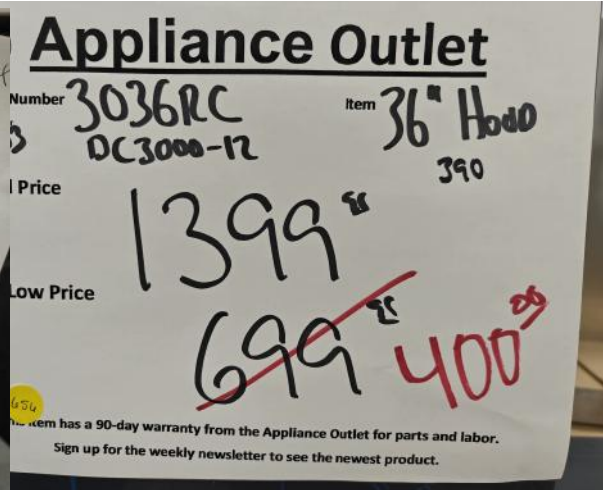 Appliance Outlet
Number 3036RC Item 36" Hood
DC3000-12 390
Price 1399
Low Price
699 400 00
654
item has a 90-day warranty from the Appliance Outlet for parts and labor.
Sign up for the weekly newsletter to see the newest product.